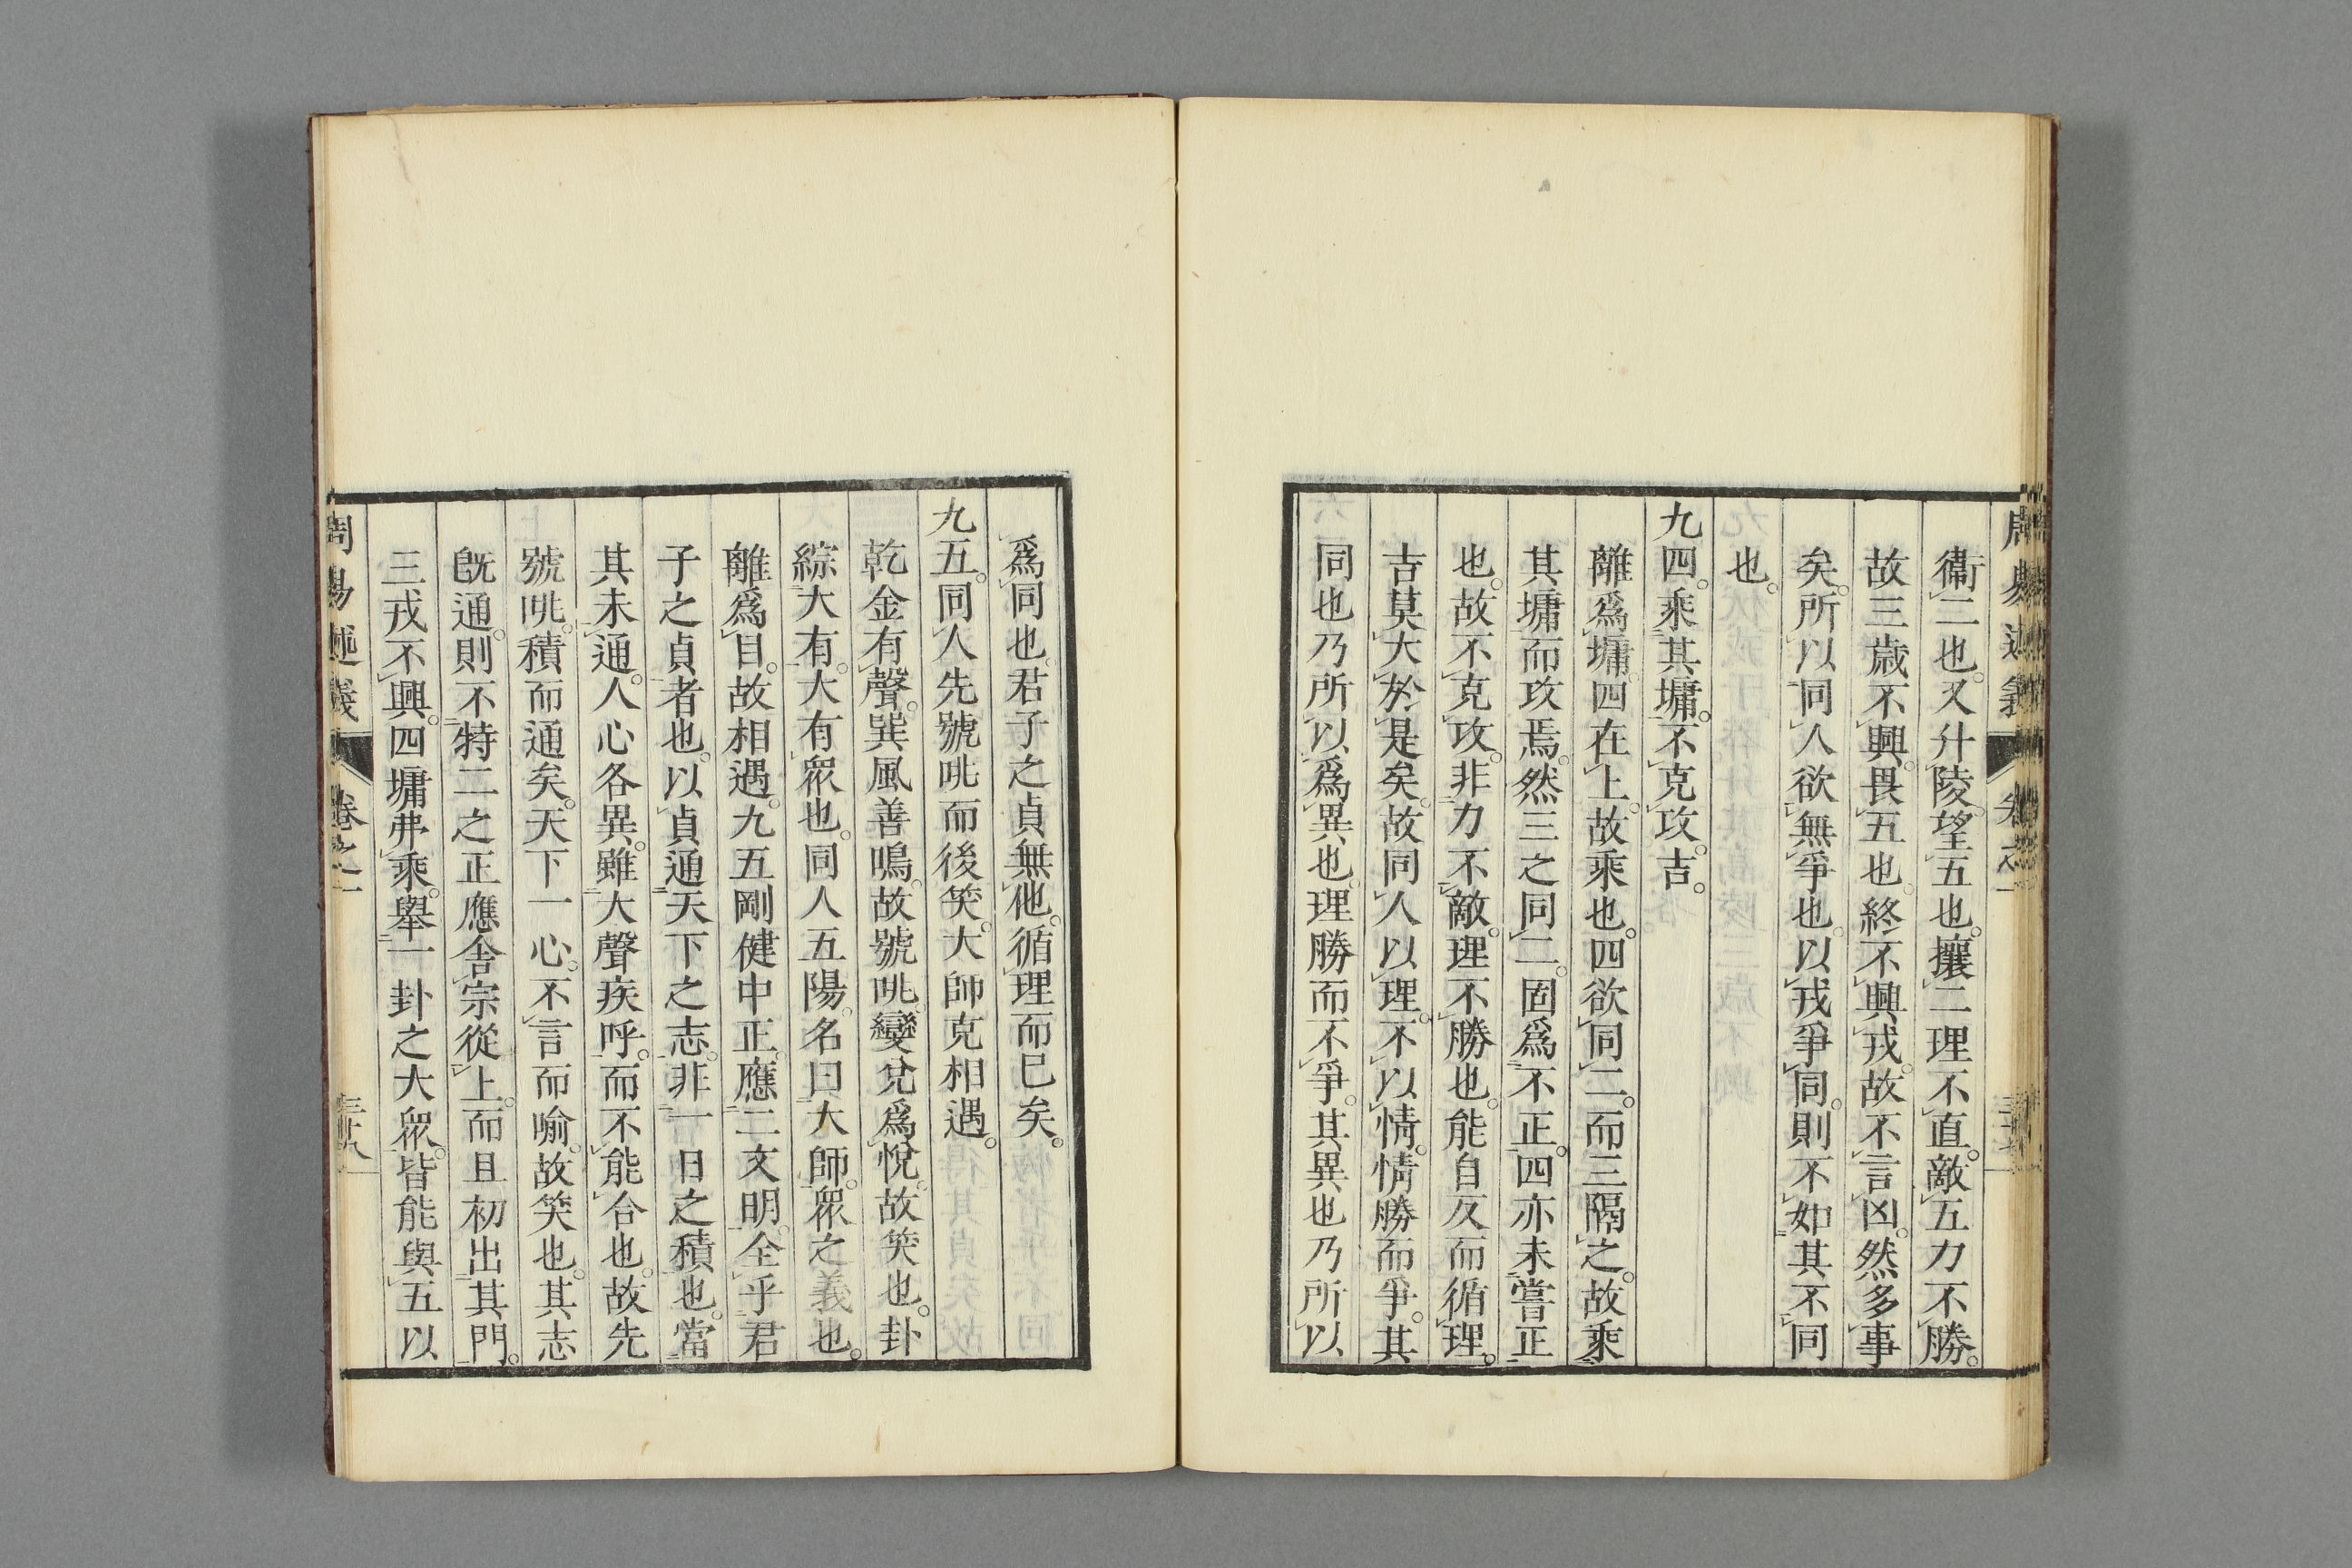 衞二也。又升陵。望五也。攘二理不直。敵五力不勝。
故三歳不興。畏五也。終不興戎。故不言凶。然多事
矣。所以同人欲無爭也。以戎爭同。則不如其不同
也。
九四。乘其墉。不克攻。吉。
離爲墉。四在上。故乘也。四欲同二。而三隔之。故乘
其墉而攻焉。然三之同二。固爲不正。四亦未嘗正
也。故不克攻。非力不敵。理不勝也。能自反而循理。
吉莫大於是矣。故同人以理。不以情。情勝而爭。其
同也乃所以爲異也。理勝而不爭。其異也乃所以
爲同也。君子之貞無他。循理而已矣。
九五。同人先號咷而後笑。大師克相遇。
乾金有聲。巽風善鳴。故號咷。變兌爲悅。故笑也。卦
綜大有。大有衆也。同人五陽。名曰大師。衆之義也。
離爲目。故相遇。九五剛健中正。應二文明。全乎君
子之貞者也。以貞通天下之志。非一日之積也。當
其未通。人心各異。雖大聲疾呼。而不能合也。故先
號咷。積而通矣。天下一心。不言而喻。故笑也。其志
旣通。則不特二之正應舍宗從上。而且初出其門。
三戎不興。四墉弗乘。舉一卦之大衆。皆能與五以
周易述義 卷之一 三十八